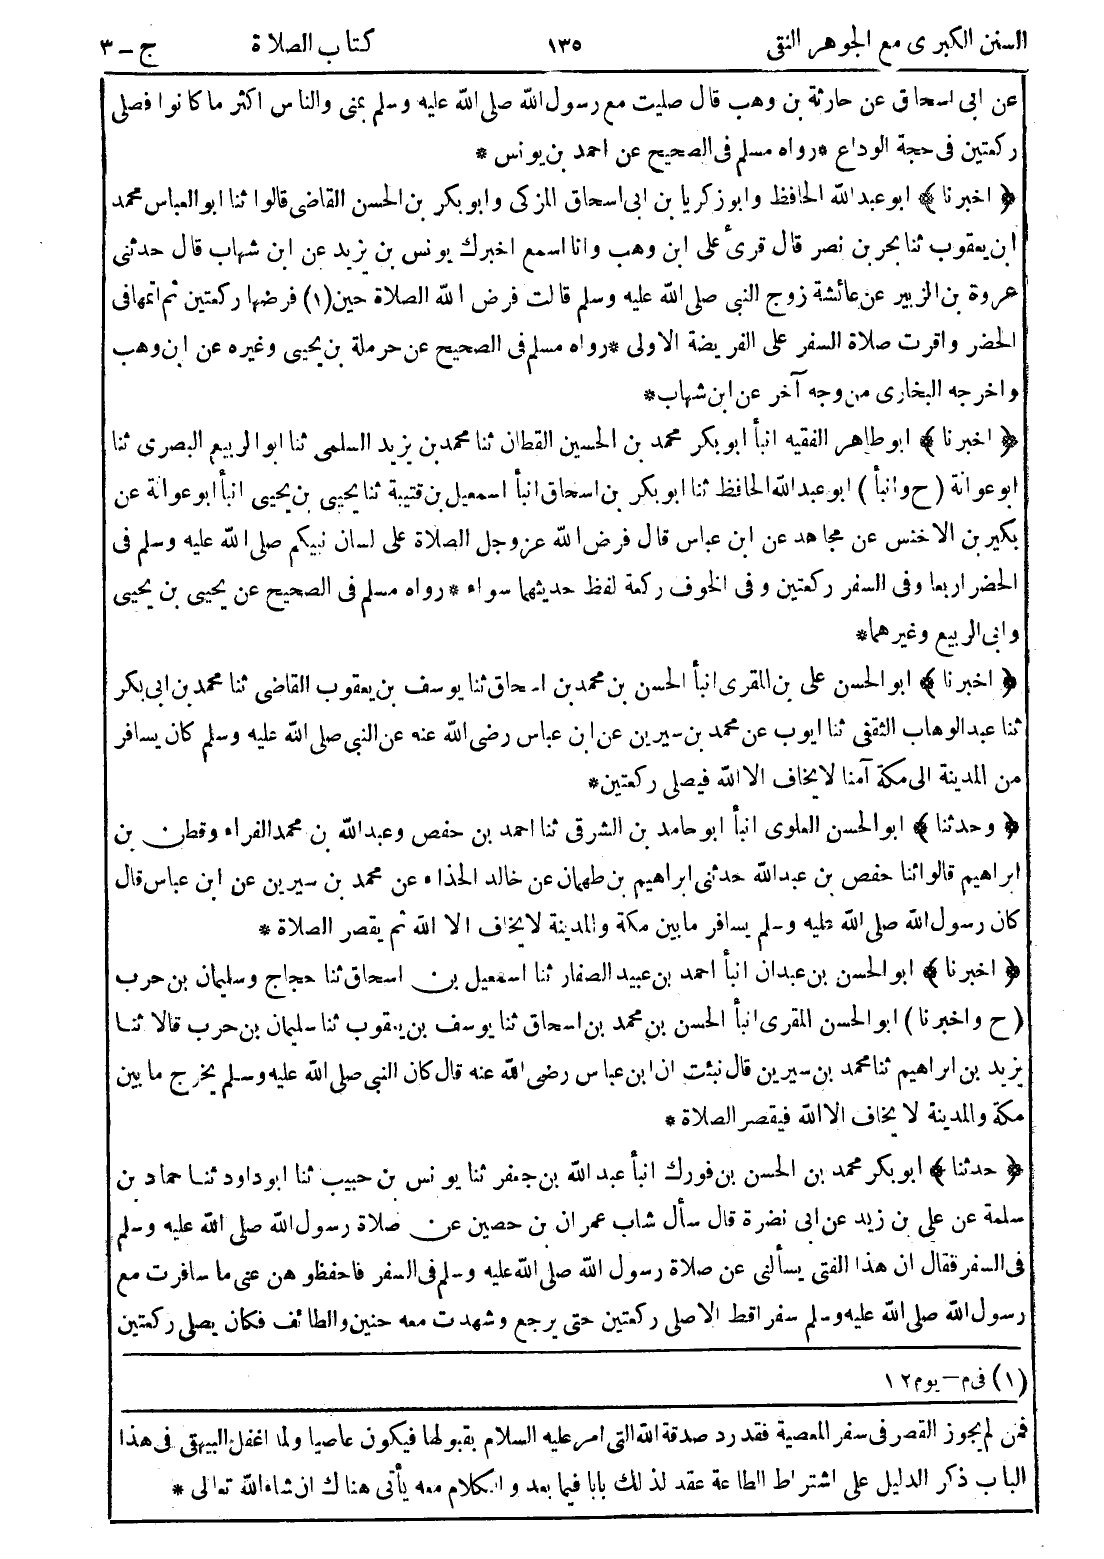 السنن الكبرى مع الجوهر النقى ١٣٥ كتاب الصلاة ج-٣
عن ابى اسحاق عن حارثة بن وهب قال صليت مع رسول الله صلى الله عليه وسلم بمنى والناس اكثر ما كانوا فصلى
ركعتين فى حجة الوداع * رواه مسلم فى الصحيح عن احمد بن يونس *
﴿ اخبرنا ﴾ ابو عبد الله الحافظ وابو زكريا بن ابى اسحاق المزكى وابو بكر بن الحسن القاضى قالوا ثنا ابو العباس محمد
ابن يعقوب ثنا بحر بن نصر قال قرىء على ابن وهب وانا اسمع اخبرك يونس بن يزيد عن ابن شهاب قال حدثنى
عروة بن الزبير عن عائشة زوج النبى صلى الله عليه وسلم قالت فرض الله الصلاة حين (١) فرضها ركعتين ثم اتمها فى
الحضر واقرت صلاة السفر على الفريضة الاولى * رواه مسلم فى الصحيح عن حرملة بن يحيى وغيره عن ابن وهب
واخرجه البخارى من وجه آخر عن ابن شهاب *
﴿ اخبرنا ﴾ ابو طاهر الفقيه انبأ ابو بكر محمد بن الحسين القطان ثنا محمد بن يزيد السلمى ثنا ابو الربيع البصرى ثنا
ابو عوانة ( ح وانبأ ) ابو عبد الله الحافظ ثنا ابو بكر بن اسحاق انبأ اسمعيل بن قتيبة ثنا يحيى بن يحيى انبأ ابو عوانة عن
بكير بن الاخنس عن مجاهد عن ابن عباس قال فرض الله عز وجل الصلاة على لسان نبيكم صلى الله عليه وسلم فى
الحضر اربعا وفى السفر ركعتين وفى الخوف ركعة لفظ حديثهما سواء * رواه مسلم فى الصحيح عن يحيى بن يحيى
وابى الربيع وغيرهما *
﴿ اخبرنا ﴾ ابو الحسن على بن المقرى انبأ الحسن بن محمد بن اسحاق ثنا يوسف بن يعقوب القاضى ثنا محمد بن ابى بكر
ثنا عبد الوهاب الثقفى ثنا ايوب عن محمد بن سيرين عن ابن عباس رضى الله عنه عن النبى صلى الله عليه وسلم كان يسافر
من المدينة الى مكة آمنا لا يخاف الا الله فيصلى ركعتين *
﴿ وحدثنا ﴾ ابو الحسن العلوى انبأ ابو حامد بن الشرقى ثنا احمد بن حفص وعبد الله بن محمد الفراء وقطن بن
ابراهيم قالوا ثنا حفص بن عبد الله حدثنى ابراهيم بن طهمان عن خالد الحذاء عن محمد بن سيرين عن ابن عباس قال
كان رسول الله صلى الله عليه وسلم يسافر ما بين مكة والمدينة لا يخاف الا الله ثم يقصر الصلاة *
﴿ اخبرنا ﴾ ابو الحسن بن عبدان انبأ احمد بن عبيد الصفار ثنا اسمعيل بن اسحاق ثنا حجاج وسليمان بن حرب
( ح واخبرنا ) ابو الحسن المقرى انبأ الحسن بن محمد بن اسحاق ثنا يوسف بن يعقوب ثنا سليمان بن حرب قالا ثنا
يزيد بن ابراهيم ثنا محمد بن سيرين قال نبئت ان ابن عباس رضى الله عنه قال كان النبى صلى الله عليه وسلم يخرج ما بين
مكة والمدينة لا يخاف الا الله فيقصر الصلاة *
﴿ حدثنا ﴾ ابو بكر محمد بن الحسن بن فورك انبأ عبد الله بن جعفر ثنا يونس بن حبيب ثنا ابو داود ثنا حماد بن
سلمة عن على بن زيد عن ابى نضرة قال سأل شاب عمران بن حصين عن صلاة رسول الله صلى الله عليه وسلم
فى السفر فقال ان هذا الفتى يسألنى عن صلاة رسول الله صلى الله عليه وسلم فى السفر فاحفظوهن عنى ما سافرت مع
رسول الله صلى الله عليه وسلم سفرا قط الا صلى ركعتين حتى يرجع وشهدت معه حنين والطائف فكان يصلى ركعتين
(١) فى م - يوم ١٢
فمن لم يجوز القصر فى سفر المعصية فقد رد صدقة الله التى امر عليه السلام بقبولها فيكون عاصيا ولما اغفل البيهقى فى هذا
الباب ذكر الدليل على اشتراط الطاعة عقد لذلك بابا فيما بعد والكلام معه يأتى هناك ان شاء الله تعالى *